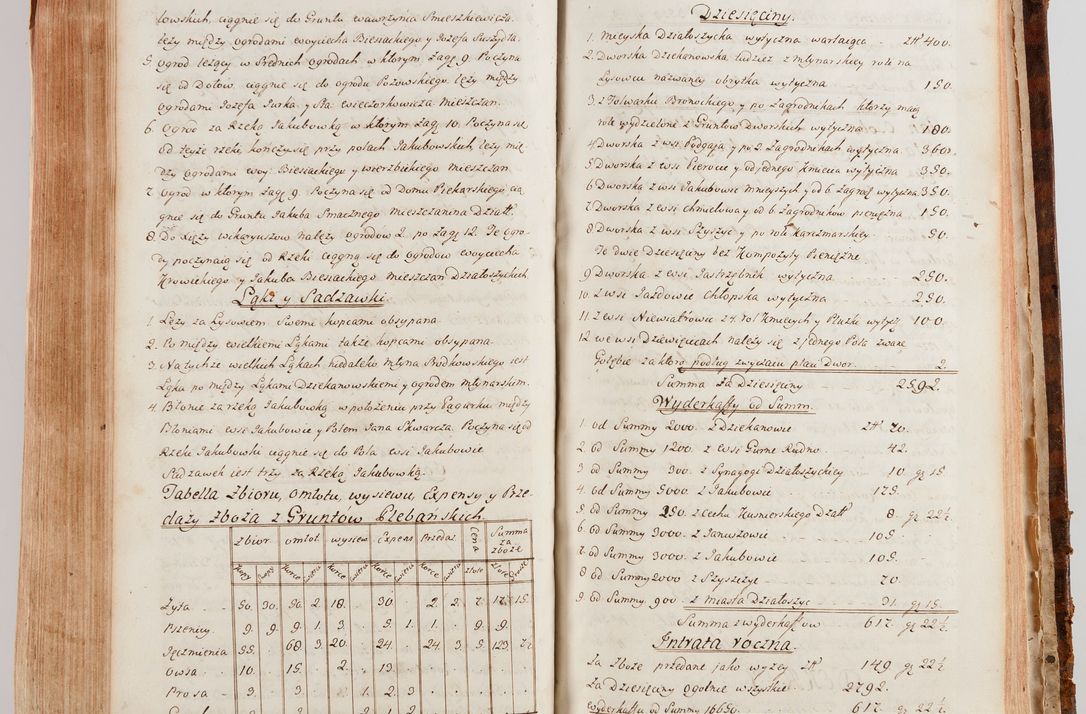 towskich, ciągnie się do Gruntu wawrzyńca Smieszkiewicza
leży między ogrodami woyciecha Biesiackiego y Jozefa Suszydła.
5. ogrod leżący w Srednich ogrodach w ktorym Zag: 9. Poczyna
się od Dołow, ciągnie się do ogrodu Pozowskiego leży między
ogrodami Jozefa Jurka, y Sta: wieczorkowicza mieszczan.
6. ogrod za Rzeką Jakubowką w ktorym Zag: 10. Poczyna się
od teyże rzeki kończy się przy polach Jakubowskich leży mię
dzy ogrodami woy: Biesiackiego y wierzbickiego mieszczan
7. ogrod w ktorym Zag: 9. Poczyna się od Domu Piekarskiego cią
gnie się do Gruntu Jakuba Smacznego mieszczanina Działł.
8. Do Xięży wikaryuszow należy ogrodow 2. po Zag: 12. Te ogro-
dy poczynaią się od Rzeki ciągną się do ogrodow woyciecha
Krowickiego y Jakuba Biesiackiego mieszczan Działoszyckich
Łąki y Sadzawki.
1. Leży za Łysowcem Swemi kopcami obsypana
2. Po między wielkiemi Łąkami także kopcami obsypana.
3. Na tychże wielkich Łąkach niedaleko młyna Brodkowskiego iest
Łąka po między Łąkami Dziekanowskiemi y ogrodem młynarskim.
4. Błonie za rzeką Jakubowką w położeniu przy Łagierku między
Błoniami wsi Jakubowie y Błem Jana Skwarcza. Poczyna się od
Rzeki Jakubowki ciągnie się do Pola wsi Jakubowic
Sadzawek iest trzy za Rzeką Jakubowką.
Tabella zbioru, omłotu, wysiewu, Expensy y Prze-
daży zboża z Gruntów Plebańskich
Zbior omłot wysiew Expens Przedaż Cena Summa za zboże
Kopy Snopy korce ćwierci korce ćwierci korce ćwierci korce ćwierci złote złote Grosze
Żyta 50. 30. 50. 2. 18. 30. 2. 2. 7. 17. 15.
Pszenicy. 9. 9. 9. 1. 3. 5. 1. 1. 9. 9.
Jęczmienia 55. 68 3. 20. 24. 24. 3. 5. 123. 7½
owsa 10. 15. 2. 13.
Prosa 3. 3. 1. 2. 3.
Dziesięciny.
1. mieyska Działoszycka wytyczna wartaiąca złł 400.
2. Dworska Dziekanowska tudzież z młynarskiey roli na
Łysowcu nazwaney obrytka wytyczna 150.
3. z Folwarku Bronockiego y po Zagrodnikach ktorzy maią
role wydzielone z Gruntow Dworskich wytyczna 180.
4 Dworska z wsi Podgaja y po 2. Zagrodnikach wytyczna. 360.
5 Dworska z wsi Pierocic y od jednego kmiecia wytyczna 350.
6 Dworska z wsi Jakubowic mnieyszych y od 6. Zagrod: wytyczna. 350.
7. Dworska z wsi chmielowa y od 6 Zagrodnikow pieniężna 150.
8 Dworska z wsi Szyszyc y po roli karczmarskiey. 50.
Te dwie Dziesięciny bez Kompozyty Pieniężne
9 Dworska z wsi Jastrzębnik wytyczna 250.
10. z wsi Jazdowic chłopska wytyczna 250.
11 z wsi Niewiatrowic 24. rol Kmiecych y Pluzki wytycz 100.
12. we wsi Dziewięciecach należy się z jednego Pola zwane
Gołębie za ktorą podług zwyczaiu płaci Dwor. 2.
Summa za Dziesięciny 2592.
Wyderkaffy od Summ.
1. od Summy 2000. z Dziekanowic złł 70.
2. od Summy 1200. z wsi Gurne Rudno. 42.
3. od Summy 300. z Synagogi Działoszyckiey 10. g: 15
4. od Summy 5000. z Jakubowic 175.
5. od Summy 250. z Cechu Kusnierskiego Dział 8. g: 22½.
6. od Summy 3000. z Januszowic 105.
7. od Summy 3000. z Jakubowic 105.
8 od Summy 2000 z Szyszczyc 70.
9. od Summy. 900. z miasta Działoszyc 31. g: 15.
Summa z wyderkaffow 617. g: 22½.
Intrata roczna.
Za zboże przedane jako wyżey złł 149. g: 22½
Za Dziesięciny ogolnie wszystkie 2792.
wyderkaffu od Summy 16650. 617. g: 22½.